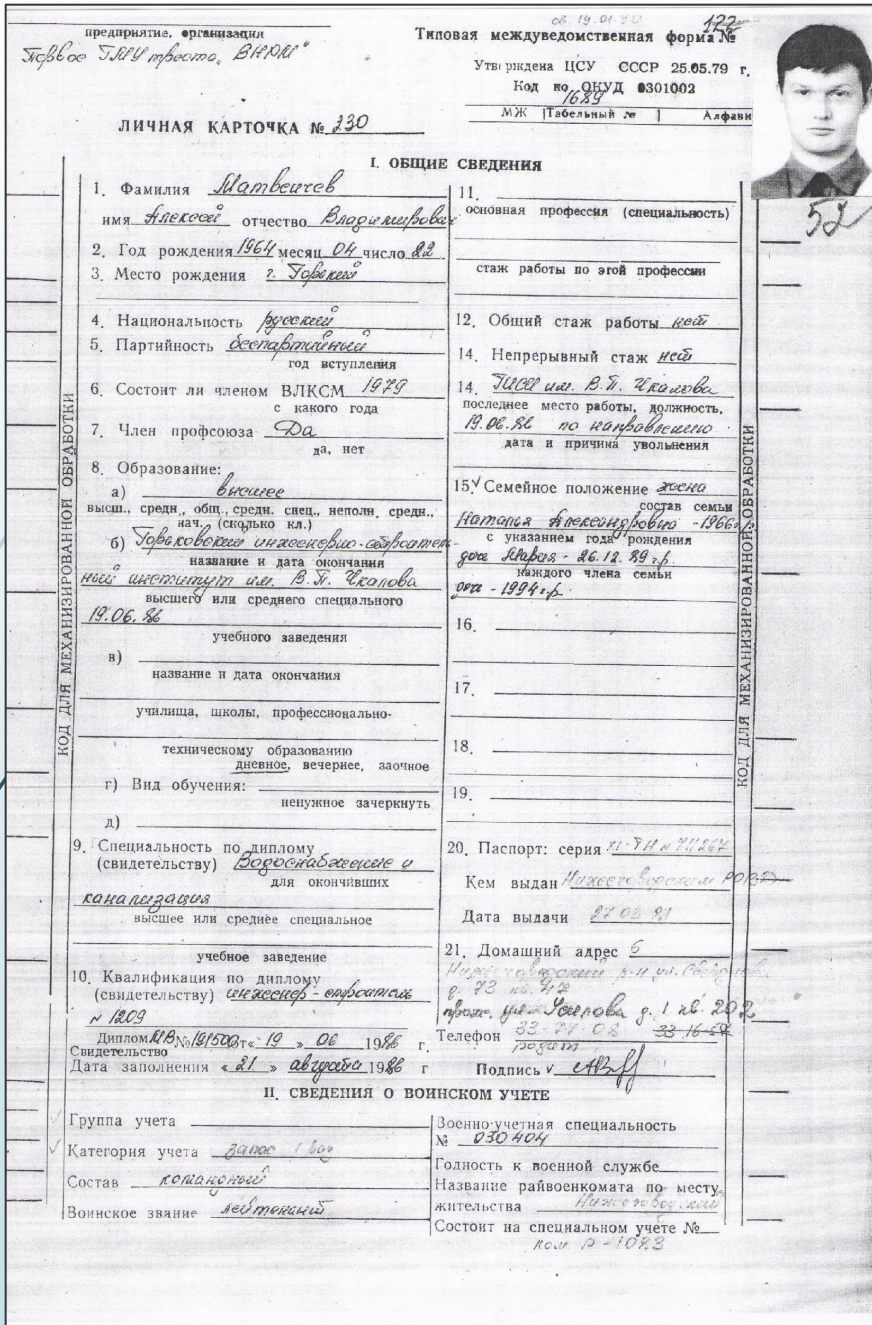 предприятие, организация
Первое ГМУ треста „ВНРМ"
св. 19.01.90
122
Типовая междуведомственная форма №
Утверждена ЦСУ СССР 25.05.79 г.
Код по ОКУД 0301002
1689
МЖ | Табельный № | Алфави
ЛИЧНАЯ КАРТОЧКА № 230
52
КОД ДЛЯ МЕХАНИЗИРОВАННОЙ ОБРАБОТКИ
I. ОБЩИЕ СВЕДЕНИЯ
1. Фамилия Матвеичев
имя Алексей отчество Владимирович
2. Год рождения 1964 месяц 04 число 22
3. Место рождения г. Горький
4. Национальность русский
5. Партийность беспартийный
год вступления
6. Состоит ли членом ВЛКСМ 1979
с какого года
7. Член профсоюза Да
да, нет
8. Образование:
а) высшее
высш., средн., общ., средн. спец., неполн. средн.,
нач. (сколько кл.)
б) Горьковский инженерно-строитель-
название и дата окончания
ный институт им. В.П. Чкалова
высшего или среднего специального
19.06.86
учебного заведения
в)
название и дата окончания
училища, школы, профессионально-
техническому образованию
дневное, вечернее, заочное
г) Вид обучения:
ненужное зачеркнуть
д)
9. Специальность по диплому
(свидетельству) Водоснабжение и
для окончивших
канализация
высшее или среднее специальное
учебное заведение
10. Квалификация по диплому
(свидетельству) инженер-строитель
№ 1209
Диплом МВ № 191500 от « 19 » 06 1986 г.
Свидетельство
Дата заполнения « 21 » августа 1986 г
11.
основная профессия (специальность)
стаж работы по этой профессии
12. Общий стаж работы нет
14. Непрерывный стаж нет
14. ГИСИ им. В.П. Чкалова
последнее место работы, должность,
19.06.86 по направлению
дата и причина увольнения
15. Семейное положение жена
состав семьи
Наталья Александровна - 1966 г.р.
с указанием года рождения
дочь Мария - 26.12.89 г.р.
каждого члена семьи
дочь - 1994 г.р.
16.
17.
18.
19.
20. Паспорт: серия
Кем выдан Нижегородским РОВД
Дата выдачи
21. Домашний адрес
Нижегородский р-н ул.
д. 73 кв. 47
д. 1 кв. 202
Телефон 33-77-08 33-16-57
Подпись
КОД ДЛЯ МЕХАНИЗИРОВАННОЙ ОБРАБОТКИ
II. СВЕДЕНИЯ О ВОИНСКОМ УЧЕТЕ
Группа учета
Категория учета запас
Состав командный
Воинское звание лейтенант
Военно-учетная специальность
№ 030404
Годность к военной службе
Название райвоенкомата по месту
жительства Нижегородский
Состоит на специальном учете №